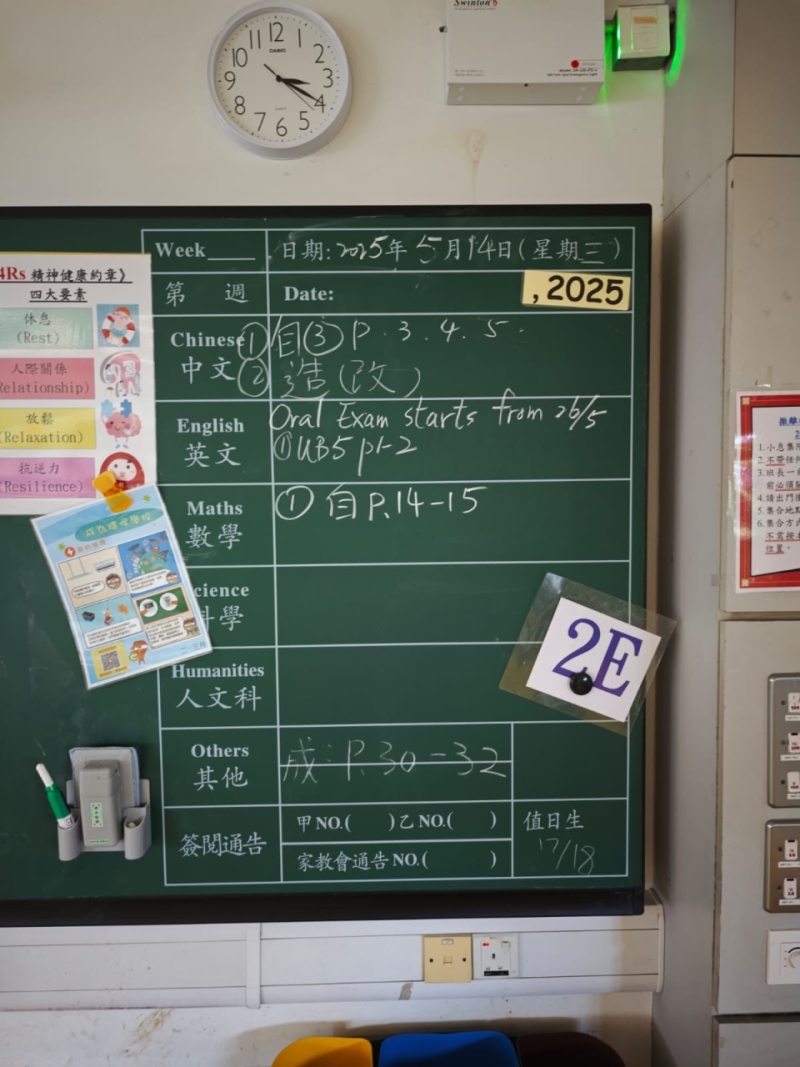 12
1
2
3
4
5
6
7
8
9
10
11
CASIO
QUARTZ
Swinton
Week____
日期:2025年5月14日(星期三)
第 週
Date:
,2025
Chinese
中文
①自③ P.3.4.5.
② 造(改)
English
英文
Oral Exam starts from 26/5
①UB5 p1-2
Maths
數學
① 自P.14-15
cience
學
Humanities
人文科
2E
Others
其他
成:P.30-32
簽閱通告
甲NO.( )乙NO.( )
家教會通告NO.( )
值日生
17/18
4Rs 精神健康約章》
四大要素
休息
(Rest)
人際關係
Relationship)
放鬆
(Relaxation)
抗逆力
(Resilience)
1.小息集
2.不帶任
3.班長一
前必須
4.請出門
5.集合地
6.集合方
位置。